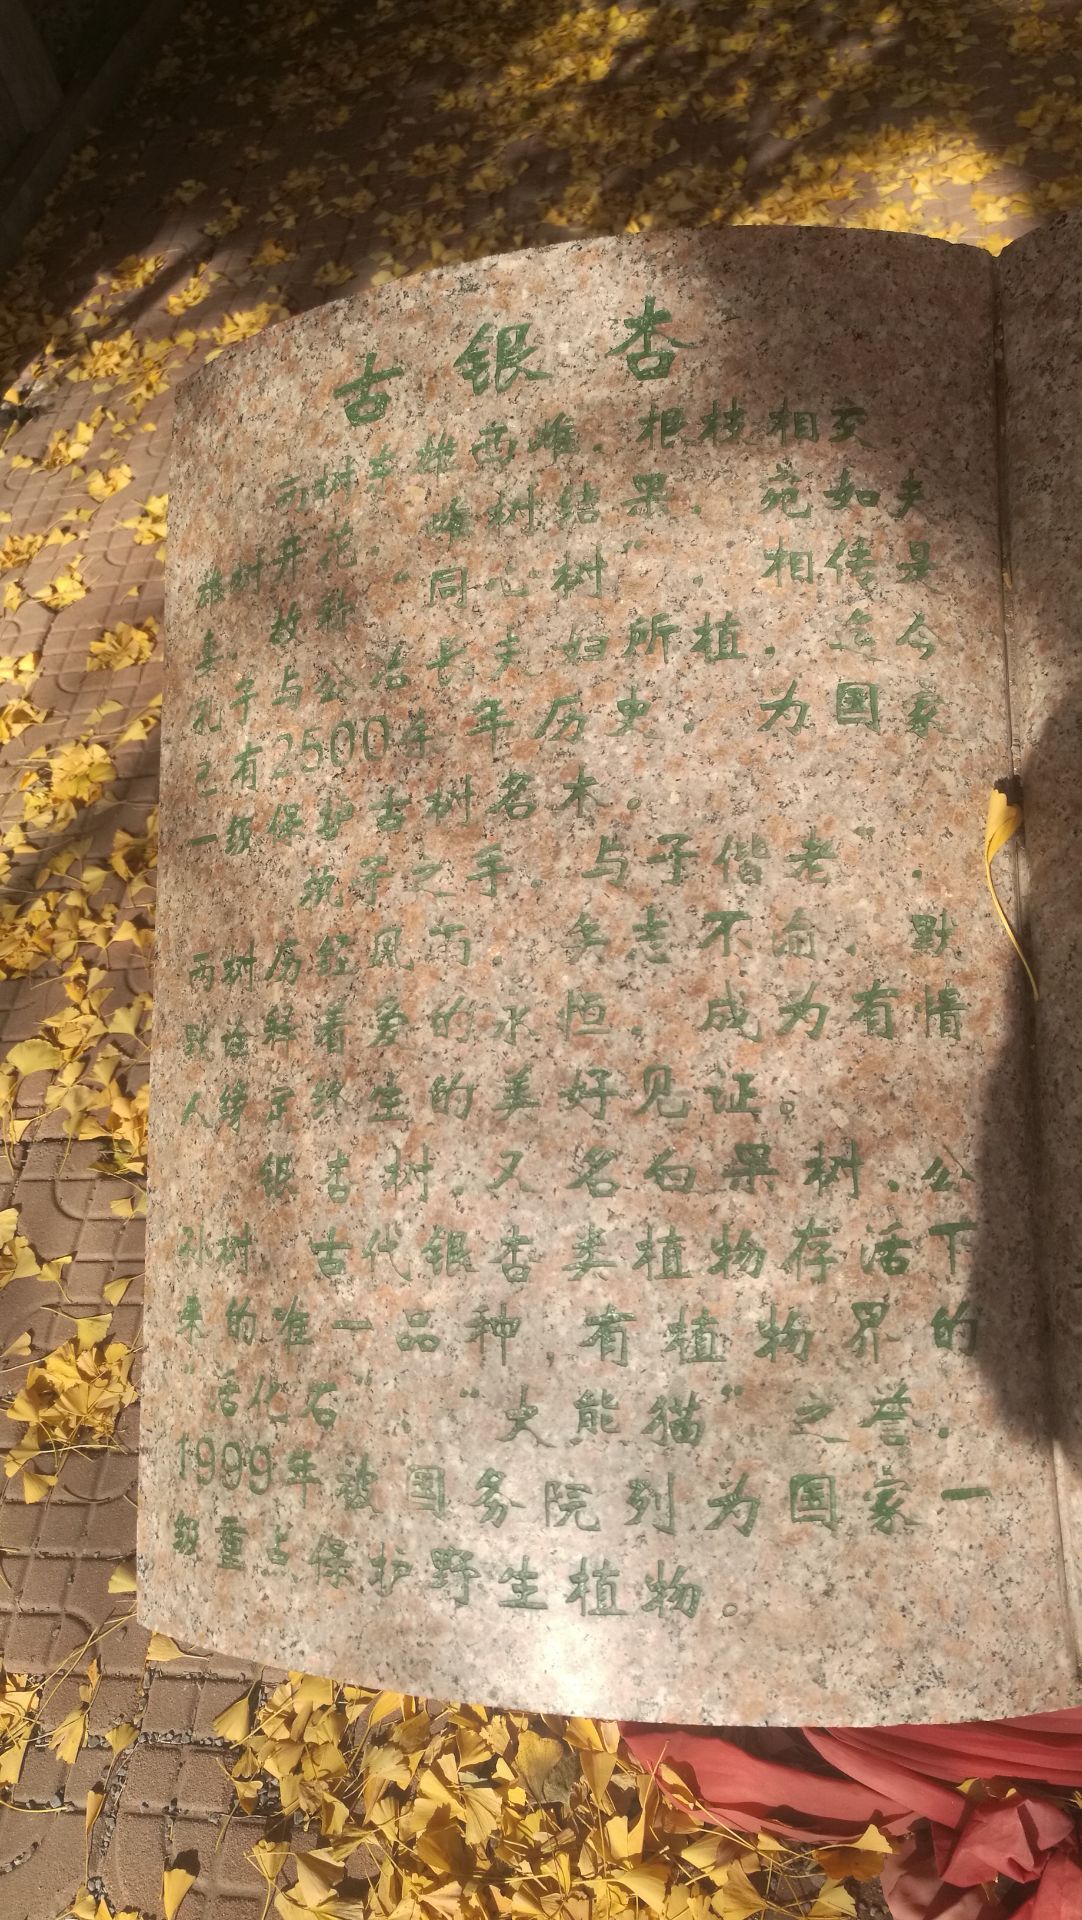 古银杏
两树东雄西雌.根枝相交
雄树开花.雌树结果.宛如夫
妻.故称"同心树".相传是
孔子与公冶长夫妇所植.迄今
已有2500余年历史.为国家
一级保护古树名木。
执子之手.与子偕老".
两树历经风雨.矢志不渝.默
默诠释着爱的永恒.成为有情
人缘定终生的美好见证。
银杏树.又名白果树、公
孙树.古代银杏类植物存活下
来的唯一品种,有植物界的
"活化石"、"大熊猫"之誉.
1999年被国务院列为国家一
级重点保护野生植物。